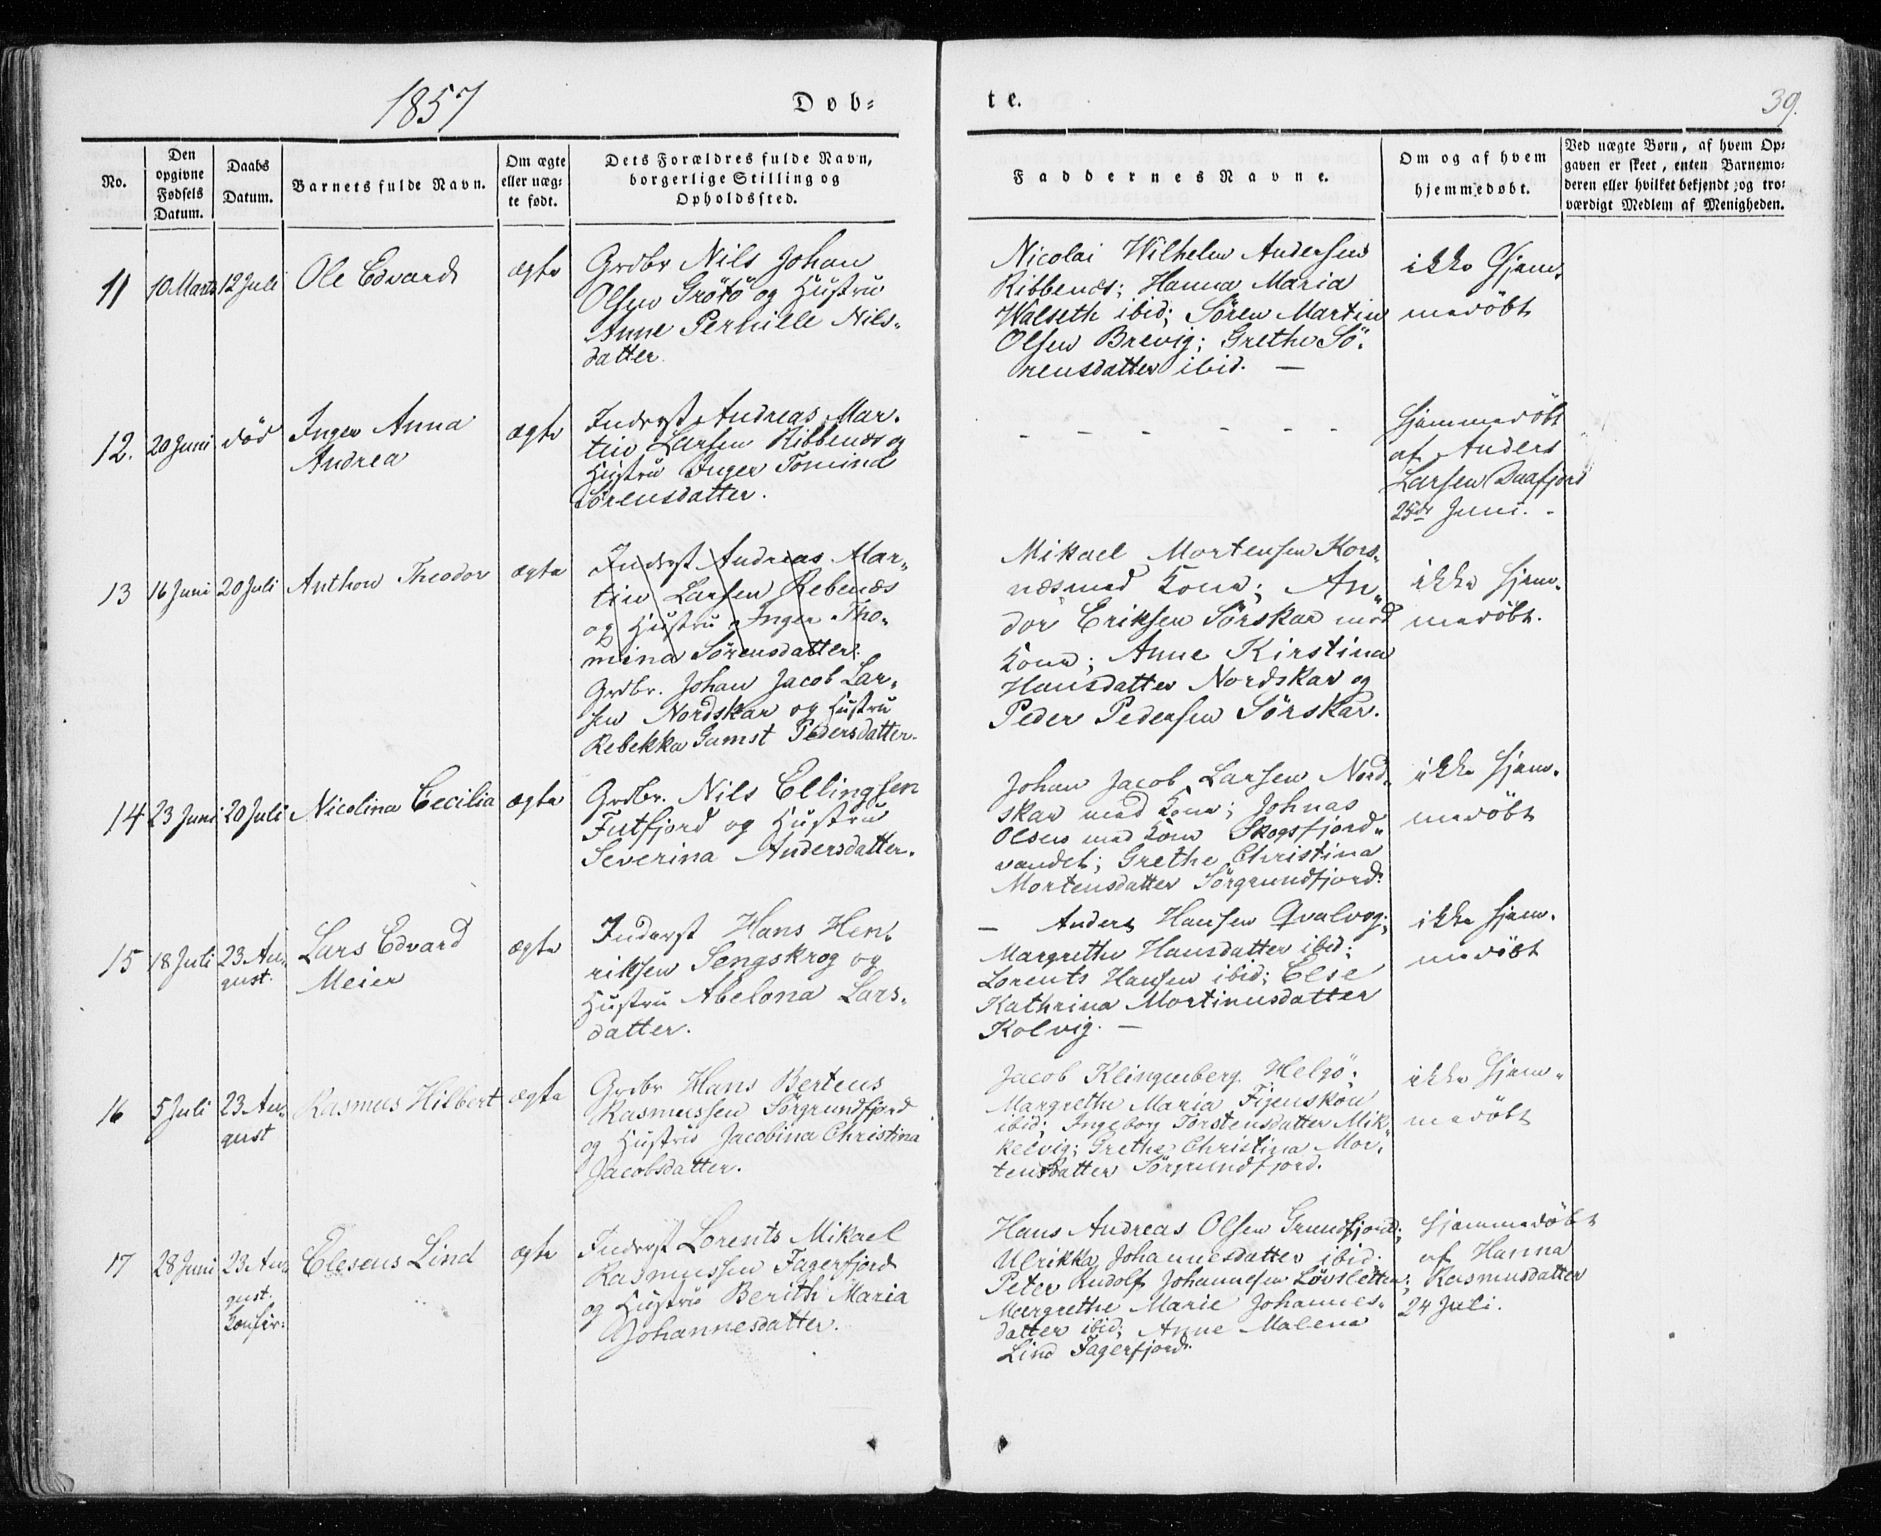 1857
Døb-
te.
39.
No.
Den
opgivne
Fødsels
Datum.
Daabs
Datum.
Barnets fulde Navn.
Om ægte
eller uæg-
te født.
Dets Forældres fulde Navn,
borgerlige Stilling og
Opholdssted.
Faddernes Navne.
Om og af hvem
hjemmedøbt.
Ved uægte Børn, af hvem Op-
gaven er skeet, enten Barnemo-
deren eller hvilket bekjendt og tro-
værdigt Medlem af Menigheden.
11
10 Marts
12 Juli
Ole Edvard
ægte
Grdbr Nils Johan
Olsen Grötö og Hustru
Anne Pernille Nils-
datter.
Nicolai Wilhelm Andersen
Ribbenæs; Hanna Maria
Walseth ibid; Sören Martin
Olsen Brevig; Grethe Sö-
rensdatter ibid. —
ikke Hjem-
medöbt
12.
20 Juni
död
Inger Anna
Andrea
ægte
Inderst Andreas Mar-
tin Larsen Ribbenæs og
Hustru Inger Tomina
Sörensdatter.
- - - - - - -
Hjemmedöbt
af Anders
Larsen Daafjord
25de Juni. -
13
16 Juni
20 Juli
Anthon Theodor
ægte
Inderst Andreas Mar-
tin Larsen Rebenæs
og Hustru Inger Tho-
mina Sörensdatter.
Grdbr. Johan Jacob Lar-
sen Nordskar og Hustru
Rebekka Gamst Pedersdatter.
Mikael Mortensen Kors-
næs med Kone; An-
dör Eriksen Sörskar med
Kone; Anne Kirstina
Hansdatter Nordskar og
Peder Pedersen Sörskar.
ikke Hjem-
medöbt.
14
23 Juni
20 Juli
Nicolina Cecilia
ægte
Grdbr. Nils Ellingsen
Futfjord og Hustru
Severina Andersdatter.
Johan Jacob Larsen Nord-
skar med Kone; Johnas
Olsen med Kone Skogsfjord-
vandet; Grethe Christina
Mortensdatter Sörgrundfjord.
ikke Hjem-
medöbt
15
18 Juli
23 Au-
gust.
Lars Edvard
Meier
ægte
Inderst Hans Hen-
riksen Sengskrog og
Hustru Abelona Lars-
datter.
— Anders Hansen Qvalvog;
Margrethe Hansdatter ibid;
Lorents Hansen ibid; Else
Kathrina Mortinusdatter
Kolvig. —
ikke Hjem-
medöbt
16
5 Juli
23 Au-
gust
Rasmus Hilbert
ægte
Grdbr Hans Berteus
Rasmussen Sörgrundfjord
og Hustru Jacobina Christina
Jacobsdatter.
Jacob Klingenberg Helgö;
Margrethe Maria Figenskou
ibid; Ingeborg Torstensdatter Mik-
kelvig; Grethe Christina Mor-
tensdatter Sörgrundfjord.
ikke Hjem-
medöbt
17
28 Juni
23 Au-
gust.
Konfir:
Eleseus Lind
ægte
Inderst Lorents Mikael
Rasmussen Fagerfjord
og Hustru Berith Maria
Johannesdatter.
Hans Andreas Olsen Grundfjord;
Ulrikka Johannesdatter ibid.
Peter Rudolf Johannesen Lövsletten;
Margrethe Marie Johannes-
datter ibid; Anne Malena
Lind Fagerfjord.
Hjemmedöbt
af Hanna
Rasmusdatter
24 Juli.